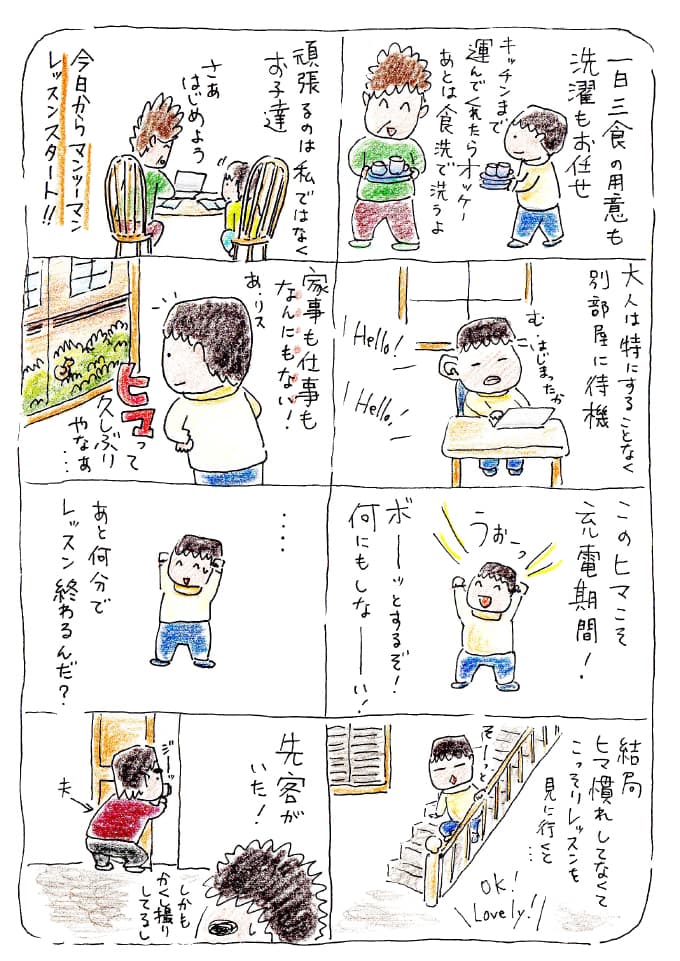 一日三食の用意も
洗濯もお任せ
キッチンまで
運んでくれたらオッケー
あとは食洗で洗うよ
頑張るのは私ではなく
お子達
さぁ
はじめよう
今日からマンツーマン
レッスンスタート!!
大人は特にすることなく
別部屋に待機
む…はじまったか
Hello!
Hello!
家事も仕事も
なんにもない!
あ、リス
ヒマって
久しぶり
やなぁ
…
このヒマこそ
充電期間!
うぉーっ
ボーーッとするぞ!
何にもしなーーい!
…・
あと何分で
レッスン終わるんだ?
結局
ヒマ慣れしてなくて
こっそりレッスンを
見に行くと…
そーっと
OK!
Lovely!
先客が
いた!
ジーッ
夫
しかも
かくし撮り
してるし